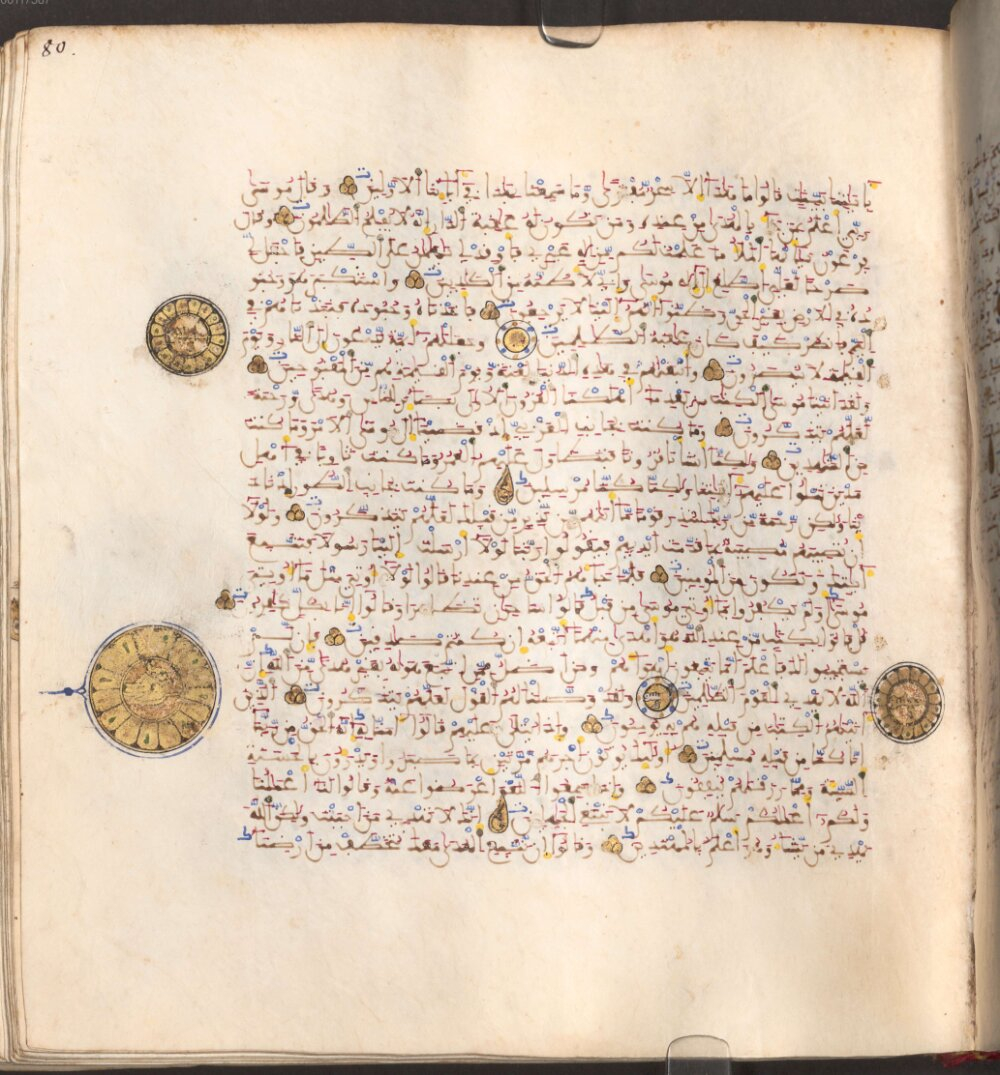 80.
بآياتنا بينات قالوا ما هذا إلا سحر مفترى وما سمعنا بهذا في آبائنا الأولين وقال موسى
ربي أعلم بمن جاء بالهدى من عنده ومن تكون له عاقبة الدار إنه لا يفلح الظالمون وقال
فرعون يا أيها الملأ ما علمت لكم من إله غيري فأوقد لي يا هامان على الطين فاجعل لي
صرحا لعلي أطلع إلى إله موسى وإني لأظنه من الكاذبين واستكبر هو وجنو
ده في الأرض بغير الحق وظنوا أنهم إلينا لا يرجعون فأخذناه وجنوده فنبذناهم في
اليم فانظر كيف كان عاقبة الظالمين وجعلناهم أئمة يدعون إلى النار ويوم
القيامة لا ينصرون وأتبعناهم في هذه الدنيا لعنة ويوم القيامة هم من المقبوحين
ولقد آتينا موسى الكتاب من بعد ما أهلكنا القرون الأولى بصائر للناس وهدى ورحمة
لعلهم يتذكرون وما كنت بجانب الغربي إذ قضينا إلى موسى الأمر وما كنت
من الشاهدين ولكنا أنشأنا قرونا فتطاول عليهم العمر وما كنت ثاويا في أهل
مدين تتلوا عليهم آياتنا ولكنا كنا مرسلين وما كنت بجانب الطور إذ ناد
ينا ولكن رحمة من ربك لتنذر قوما ما أتاهم من نذير من قبلك لعلهم يتذكرون ولولا
أن تصيبهم مصيبة بما قدمت أيديهم فيقولوا ربنا لولا أرسلت إلينا رسولا فنتبع
آياتك ونكون من المؤمنين فلما جاءهم الحق من عندنا قالوا لولا أوتي مثل ما أوتي
موسى أولم يكفروا بما أوتي موسى من قبل قالوا ساحران تظاهرا وقالوا إنا بكل كافرون
قل فأتوا بكتاب من عند الله هو أهدى منهما أتبعه إن كنتم صادقين فإن لم
يستجيبوا لك فاعلم أنما يتبعون أهواءهم ومن أضل ممن اتبع هواه بغير هدى من الله إن
الله لا يهدي القوم الظالمين ولقد وصلنا لهم القول لعلهم يتذكرون الذين
آتيناهم الكتاب من قبله هم به يؤمنون وإذا يتلى عليهم قالوا آمنا به إنه الحق من ربنا
إنا كنا من قبله مسلمين أولئك يؤتون أجرهم مرتين بما صبروا ويدرءون بالحسنة
السيئة ومما رزقناهم ينفقون وإذا سمعوا اللغو أعرضوا عنه وقالوا لنا أعمالنا
ولكم أعمالكم سلام عليكم لا نبتغي الجاهلين إنك لا تهدي من أحببت ولكن الله
يهدي من يشاء وهو أعلم بالمهتدين وقالوا إن نتبع الهدى معك نتخطف من أرضنا